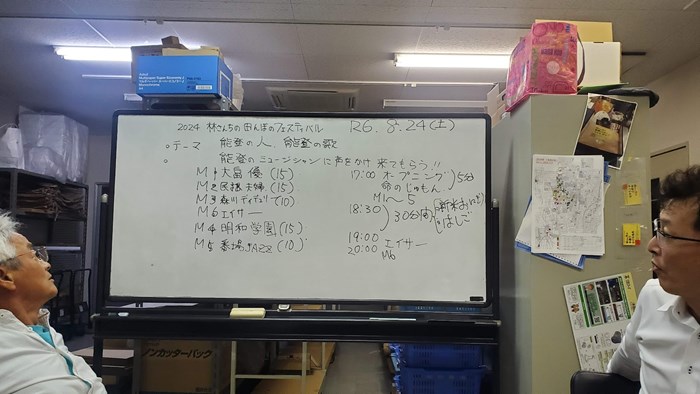 2024 林さんちの田んぼのフェスティバル R6.8.24(土)
テーマ 能登の人、能登の歌
能登のミュージシャンに声をかけ来てもらう!!
M1 大島 優 (15)
M2 民謡夫婦 (15)
M3 森川
(10)
M6 エイサー
M4 明和学園 (15)
M5 番場JAZZ (10)
17:00 オープニング
命のじゅもん
5分
M1〜5
18:30
30分間
はしご
19:00 エイサー
20:00 M6
ノンカッターパック